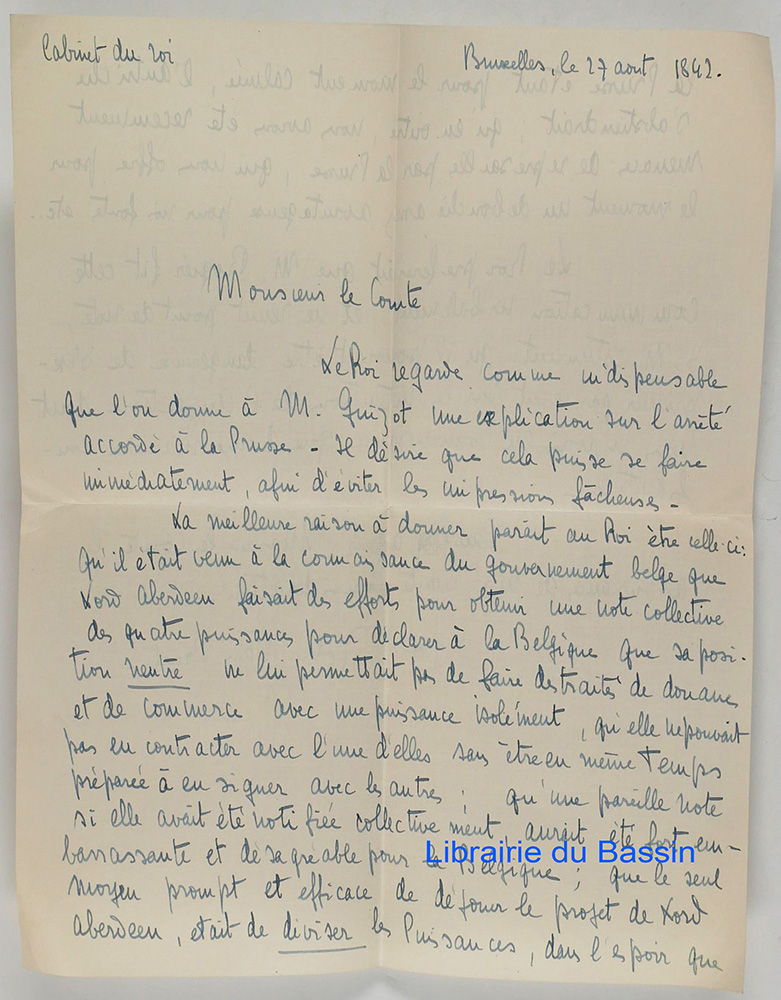 Cabinet du roi
Bruxelles, le 27 aout 1842.
Monsieur le Comte
Le Roi regarde comme indispensable
que l'on donne à M. Guizot une explication sur l'arrêté
accordé à la Prusse - Il désire que cela puisse se faire
immédiatement, afin d'éviter les impressions fâcheuses -
La meilleure raison à donner paraît au Roi être celle-ci:
qu'il était venu à la connaissance du gouvernement belge que
Lord Aberdeen faisait des efforts pour obtenir une note collective
des quatre puissances pour déclarer à la Belgique que sa posi-
tion neutre ne lui permettait pas de faire des traités de douanes
et de commerce avec une puissance isolément, qu'elle ne pouvait
pas en contracter avec l'une d'elles sans être en même temps
préparée à en signer avec les autres; qu'une pareille note
si elle avait été notifiée collectivement, aurait été fort em-
barrassante et désagréable pour la Belgique; que le seul
moyen prompt et efficace de déjouer le projet de Lord
Aberdeen, était de diviser les Puissances, dans l'espoir que
Librairie du Bassin